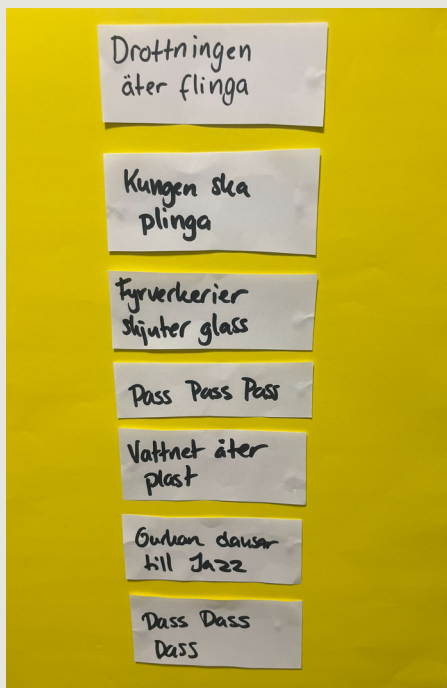 Drottningen
äter flinga
Kungen ska
plinga
Fyrverkerier
skjuter glass
Pass Pass Pass
Vattnet äter
plast
Gurkan dansar
till Jazz
Dass Dass
Dass